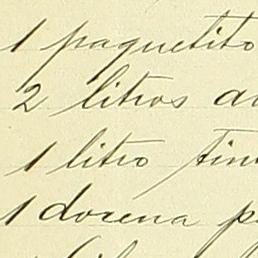 1 paquetito
2 litros
1 litro
1 docena